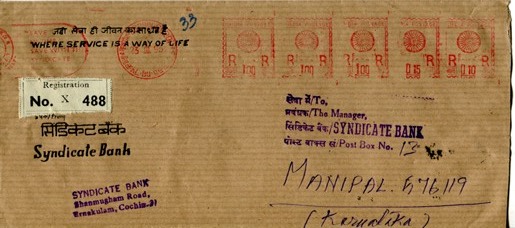 जहाँ सेवा ही जीवन का साधन है
33
WHERE SERVICE IS A WAY OF LIFE
R 1.00
R 1.00
R 1.00
R 0.15
R 0.10
Registration
No. X 488
सिंडिकेट बैंक
Syndicate Bank
SYNDICATE BANK
Shanmugham Road,
Ernakulam, Cochin-31
सेवा में/To,
प्रबंधक/The Manager,
सिंडिकेट बैंक/SYNDICATE BANK
पोस्ट बाक्स सं/Post Box No. 13
MANIPAL. 576119
(Karnatika)